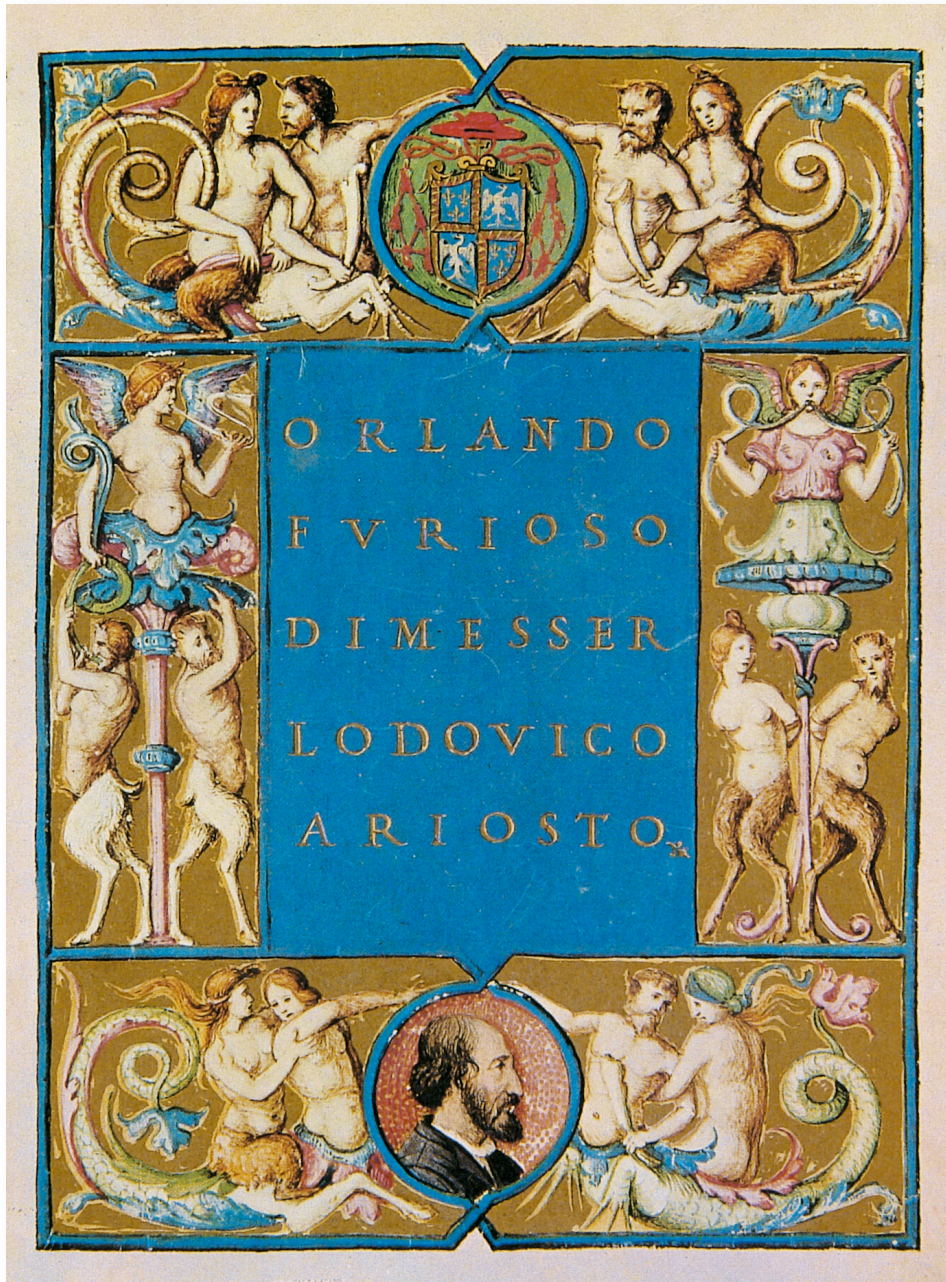 ORLANDO
FVRIOSO
DIMESSER
LODOVICO
ARIOSTO